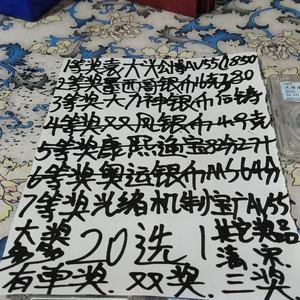 1等奖袁大头公博AV55 1850
2等奖墨西哥银币16克780
3等奖大力神银币后铸
4等奖双凤银币4.9克
5等奖康熙通宝82分27П
6等奖奥运银币MS64分
7等奖光绪机制宝广AV55
大奖 20选1 其它奖品
多多 满宗
有单奖 双奖 三奖